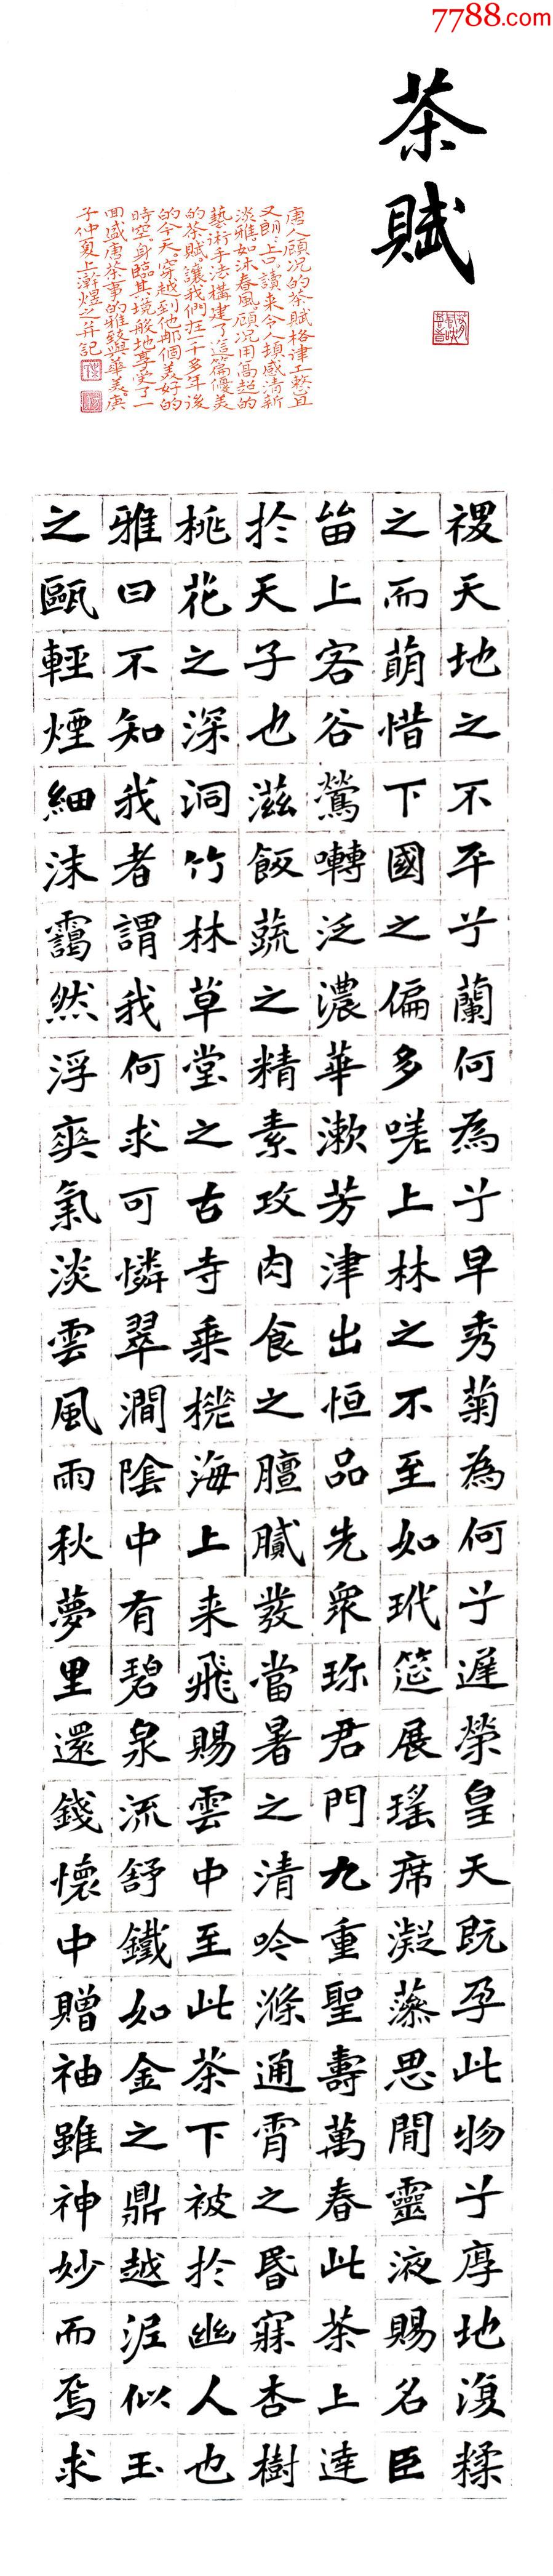 7788.com
茶賦
唐人顧况的茶賦格律工整且
又朗朗上口讀来令人頓感清新
淡雅。如沐春風顧况用高超的
藝術手法構建了這篇優美
的茶賦。讓我們在一千多年後
的今天。穿越到他那個美好的
時空。身臨其境般地享受了一
回盛唐茶事的雅致與華美。庚
子仲夏上澣煜之并記
禝天地之不平兮蘭何為兮早秀菊為何兮遲榮皇天既孕此物兮厚地復糅
之而萌惜下國之偏多嗟上林之不至如玳筵展瑤席凝藻思間靈液賜名臣
畱上客谷鶯囀泛濃華漱芳津出恒品先衆珎君門九重聖壽萬春此茶上達
於天子也滋飯蔬之精素攻肉食之膻膩發當暑之清吟滌通宵之昏寐杏樹
桃花之深洞竹林草堂之古寺乘槎海上来飛賜雲中至此茶下被於幽人也
雅曰不知我者謂我何求可憐翠澗陰中有碧泉流舒鐵如金之鼎越泥似玉
之甌輕煙細沫靄然浮爽氣淡雲風雨秋夢里還錢懷中贈袖雖神妙而焉求